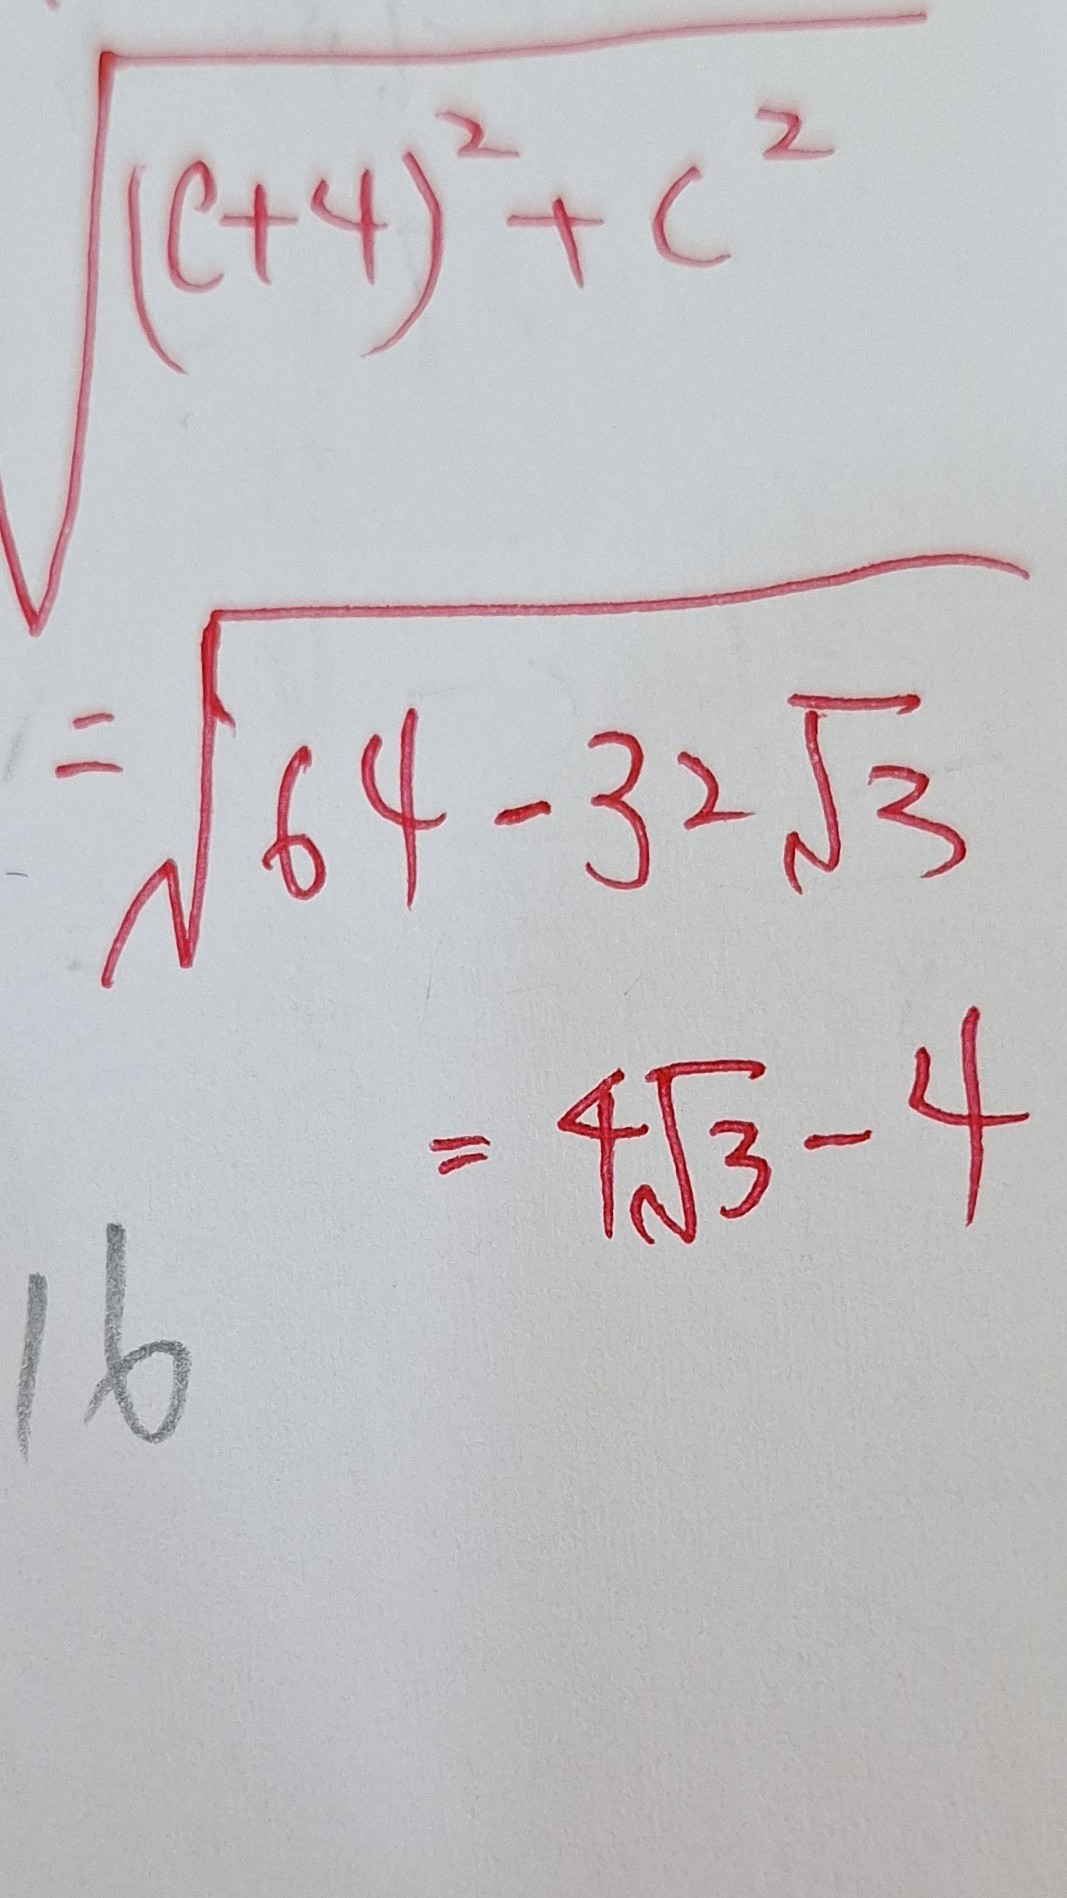 √((c+4)² + c²)
= √(64 - 32√3)
= 4√3 - 4
16